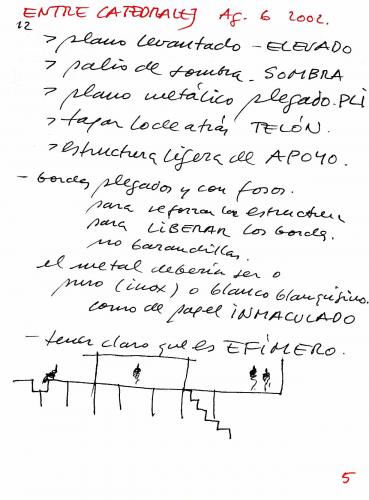 ENTRE CATEDRALES Ag. 6 2002.
12
> plano levantado - ELEVADO
> palio de sombra - SOMBRA
> plano metálico plegado. PLI
> tapar lo de atrás TELÓN.
> estructura ligera de APOYO.
- bordes plegados y con fosos.
para reforzar la estructura
para LIBERAR los bordes.
no barandillas.
el metal debería ser o
puro (inox) o blanco blanquísimo.
como de papel INMACULADO
- tener claro que es EFÍMERO.
5